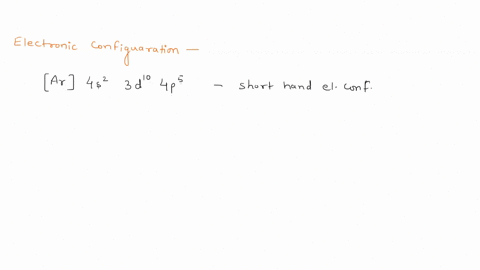 Electronic Configuaration —
[Ar] 4s² 3d¹⁰ 4p⁵ — short hand el. conf.